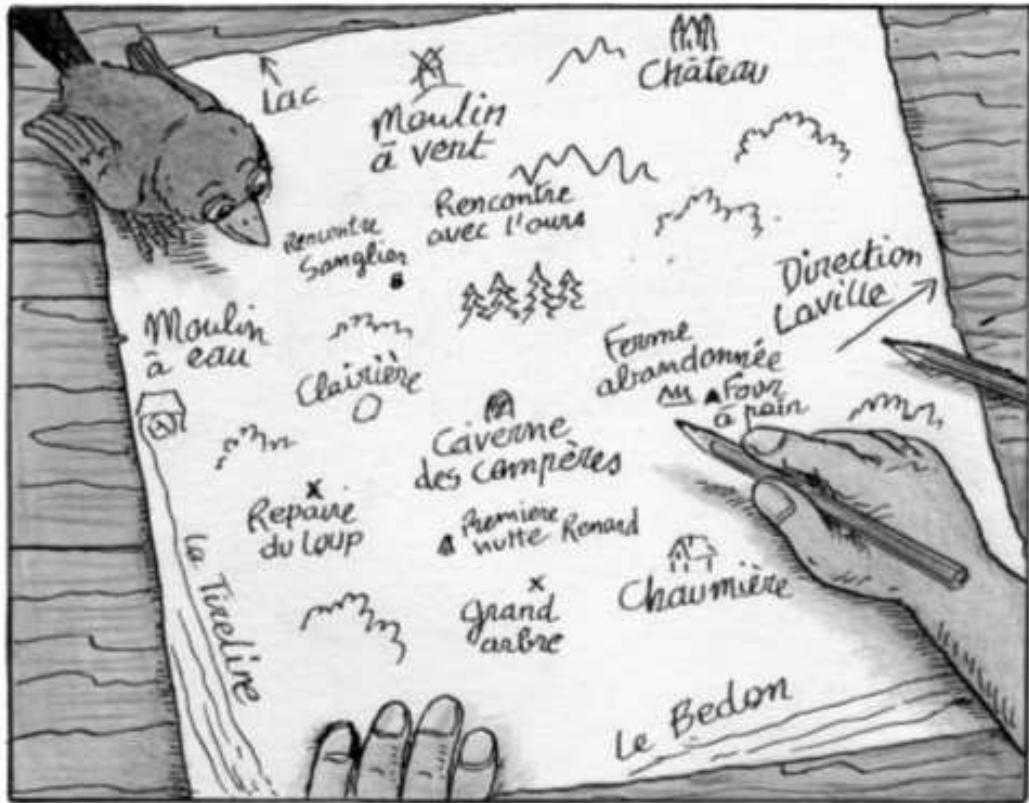 Lac
Moulin
à vent
Château
Rencontre
avec l'ours
Rencontre
Sanglier
Direction
Laville
Moulin
à eau
Clairière
Ferme
abandonnée
Four
à pain
Caverne
des compères
Repaire
du Loup
Première
hutte Renard
Chaumière
Grand
arbre
La Tirelire
Le Bedon